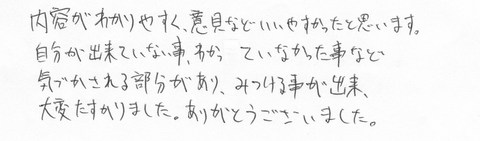 内容がわかりやすく、意見などいいやすかったと思います。
自分が出来ていない事、わかっていなかった事など
気づかされる部分があり、みつける事が出来、
大変たすかりました。ありがとうございました。